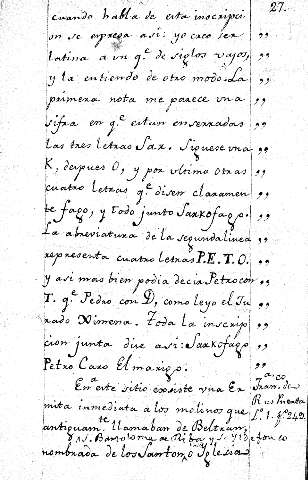 27.
cuando habla de esta inscripci
on se espresa asi: yo creo ser
latina aun q.e de siglos vajos,
y la entiendo de otro modo. La
primera nota me parece vna
sifra en q.e estan enserradas
las tres letras Sar. Siguese vna
K, despues O, y por vltimo otras
cuatro letras q.e disen claramen
te fago, y todo junto Sarkofago.
La abreviatura de la segunda linea
representa cuatro letras P.E.T.O.
y asi mas bien podia decir Petro con
T. q.e Pedro con D, como leyo el Ju
rado Ximena. Toda la inscrip
cion junta dise asi: Sarkofago
Petro Caro El marigo.
En este sitio exsiste vna Er
mita inmediata a los molinos que
antiguam.te llamaban de Beltran,
nombrada de los Santos Yglesia